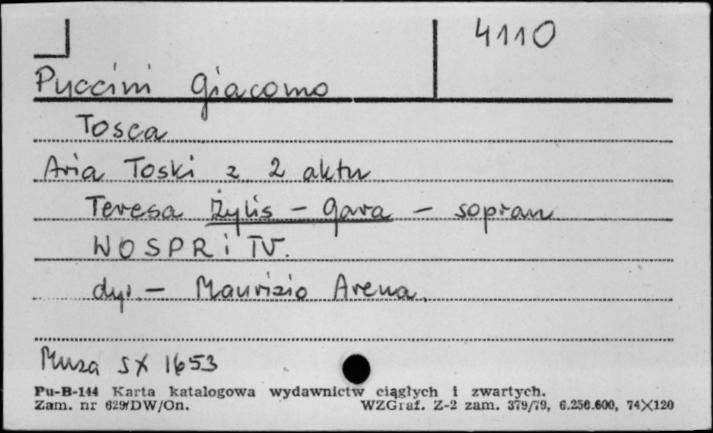 4110
Puccini Giacomo
Tosca
Aria Toski z 2 aktu
Teresa Żylis - Gara - sopran
WOSPR i TV.
dyr. - Maurizio Arena.
Muza SX 1653
Pu-B-144 Karta katalogowa wydawnictw ciągłych i zwartych.
Zam. nr 629/DW/On. WZGraf. Z-2 zam. 379/79, 6.250.600, 74×120